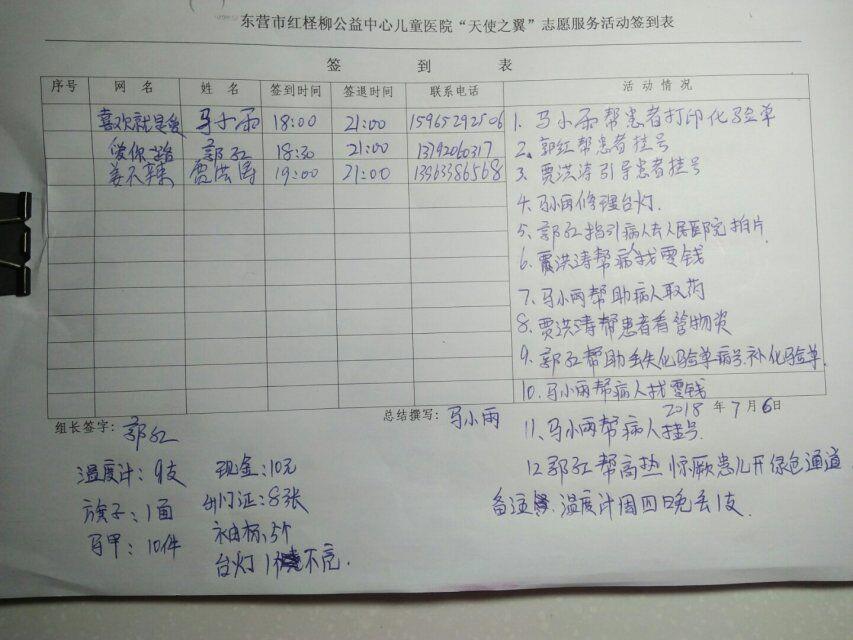 东营市红柽柳公益中心儿童医院“天使之翼”志愿服务活动签到表
签到表
序号 网名 姓名 签到时间 签退时间 联系电话 活动情况
喜欢就是爱 马小雨 18:00 21:00 15965292506
爱你一路 郭红 18:30 21:00 13792060317
姜不辣 贾洪涛 19:00 21:00 13963386568
1. 马小雨帮患者打印化验单
2. 郭红帮患者挂号
3. 贾洪涛引导患者挂号
4. 马小雨修理台灯.
5. 郭红指引病人去人民医院拍片.
6. 贾洪涛帮病人找零钱
7. 马小雨帮助病人取药
8. 贾洪涛帮患者看管物资
9. 郭红帮助丢失化验单病号.补化验单.
10. 马小雨帮病人找零钱
2018年7月6日
组长签字:郭红
总结撰写:马小雨
11、马小雨帮病人挂号.
12 郭红帮高热惊厥患儿开绿色通道
备注 温度计周四晚丢1支.
温度计:9支 现金:10元
旗子:1面 出门证:8张
马甲:10件 袖标:5个
台灯1 不亮.